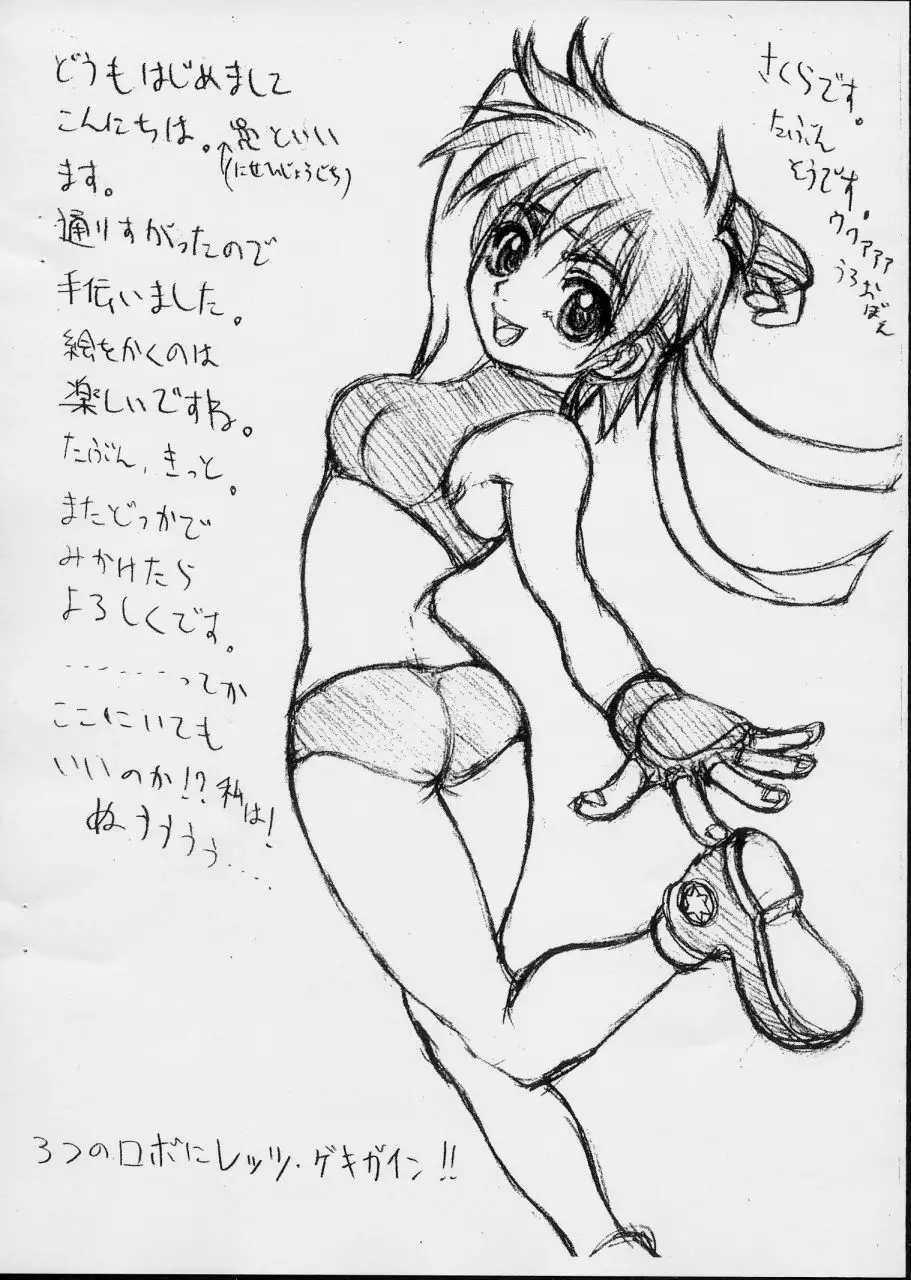 どうもはじめまして
こんにちは。といい
(にせんじょうじち)
ます。
通りすがったので
手伝いました。
絵をかくのは
楽しいですね。
たぶん、きっと。
またどっかで
みかけたら
よろしくです。
........ってか
ここにいても
いいのか!?私は!
ぬぅぅぅぅ....
さくらです。
たぶん
そうです。
ウウァァァ
うろおぼえ
3つのロボにレッツ・ゲキガイン!!